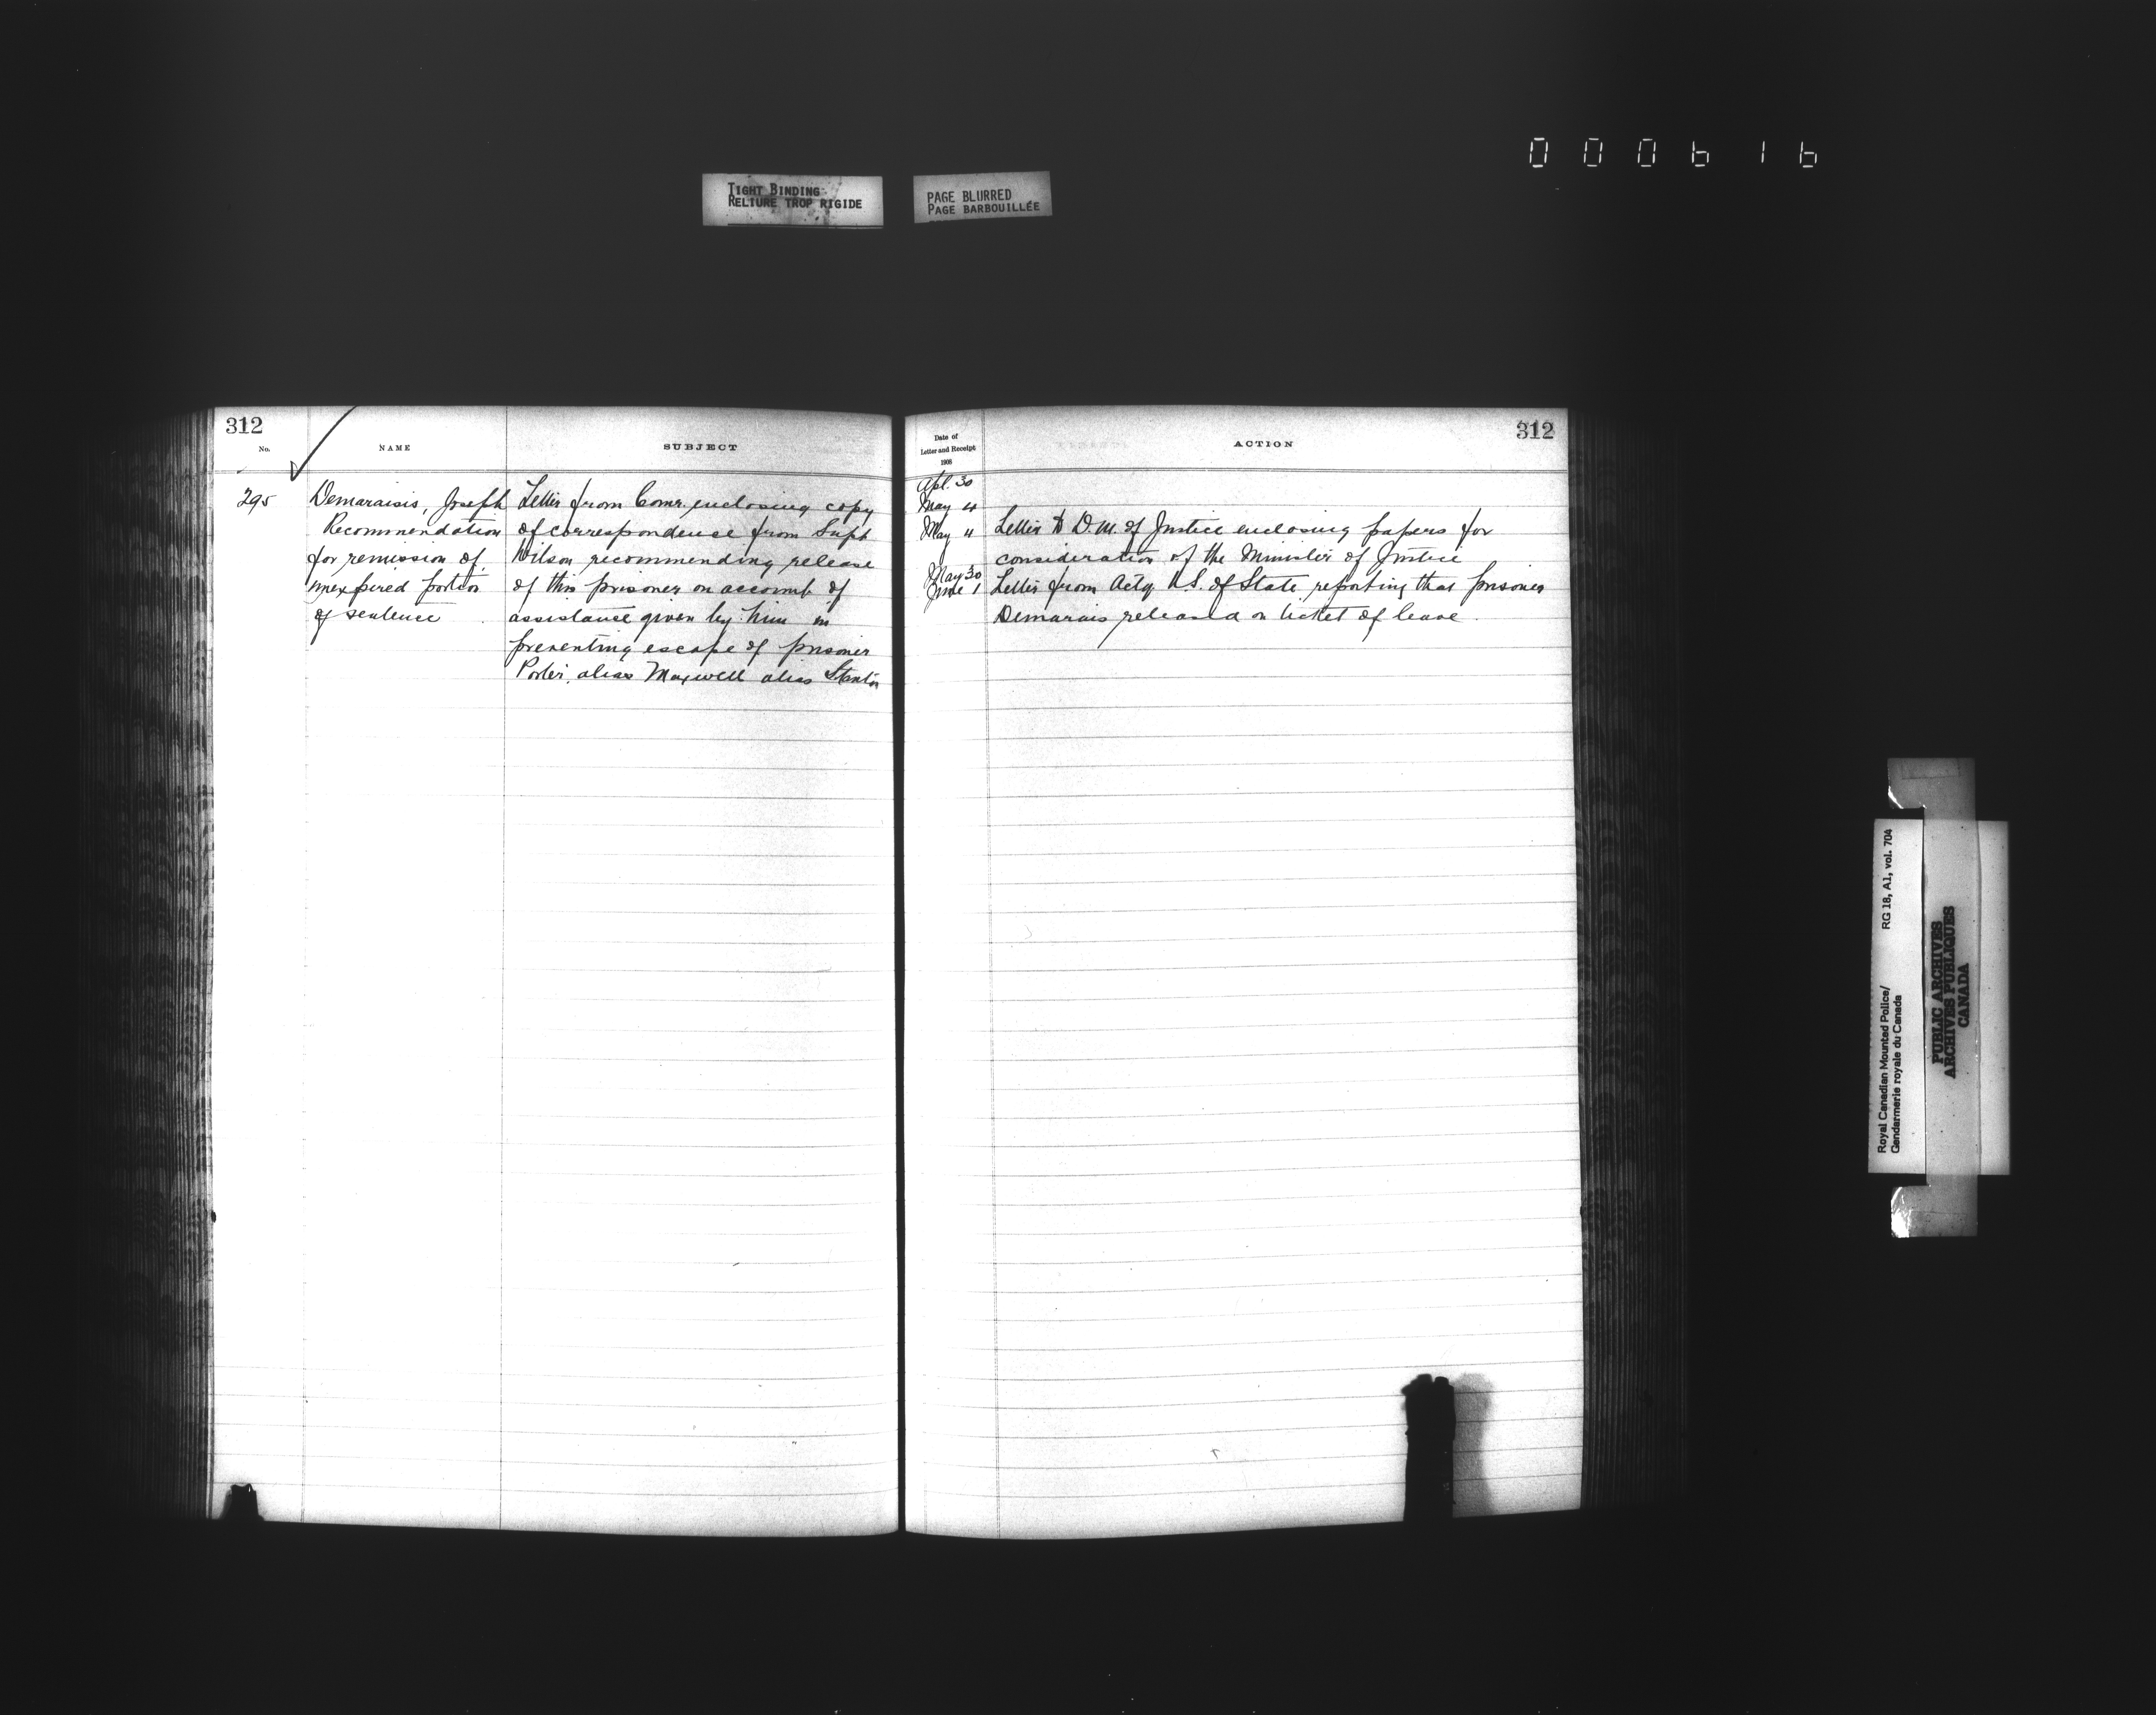 000616
TIGHT BINDING
RELIURE TROP RIGIDE
PAGE BLURRED
PAGE BARBOUILLÉE
312
No.
NAME
SUBJECT
295
Demaraisis, Joseph
Recommendation
for remission of
unexpired portion
of sentence
Letter from Comr. enclosing copy
of correspondence from Supt
Wilson recommending release
of this prisoner on account of
assistance given by him in
preventing escape of prisoner
Porter alias Maxwell alias Stanton
312
Date of
Letter and Receipt
1908
ACTION
Apl. 30
May 4
May 4
Letter to D.M. of Justice enclosing papers for
consideration of the Minister of Justice
May 30
June 1
Letter from Actg U.S. of State reporting that prisoner
Demarais released on ticket of leave.
Royal Canadian Mounted Police/
Gendarmerie royale du Canada
RG 18, A1, vol. 704
PUBLIC ARCHIVES
ARCHIVES PUBLIQUES
CANADA